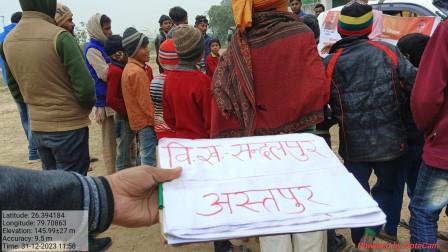 वि.ख.-सन्दलपुर
अस्तपुर
Latitude: 26.394184
Longitude: 79.70863
Elevation: 145.99±27 m
Accuracy: 9.5 m
Time: 31-12-2023 11:58
Powered by NoteCam